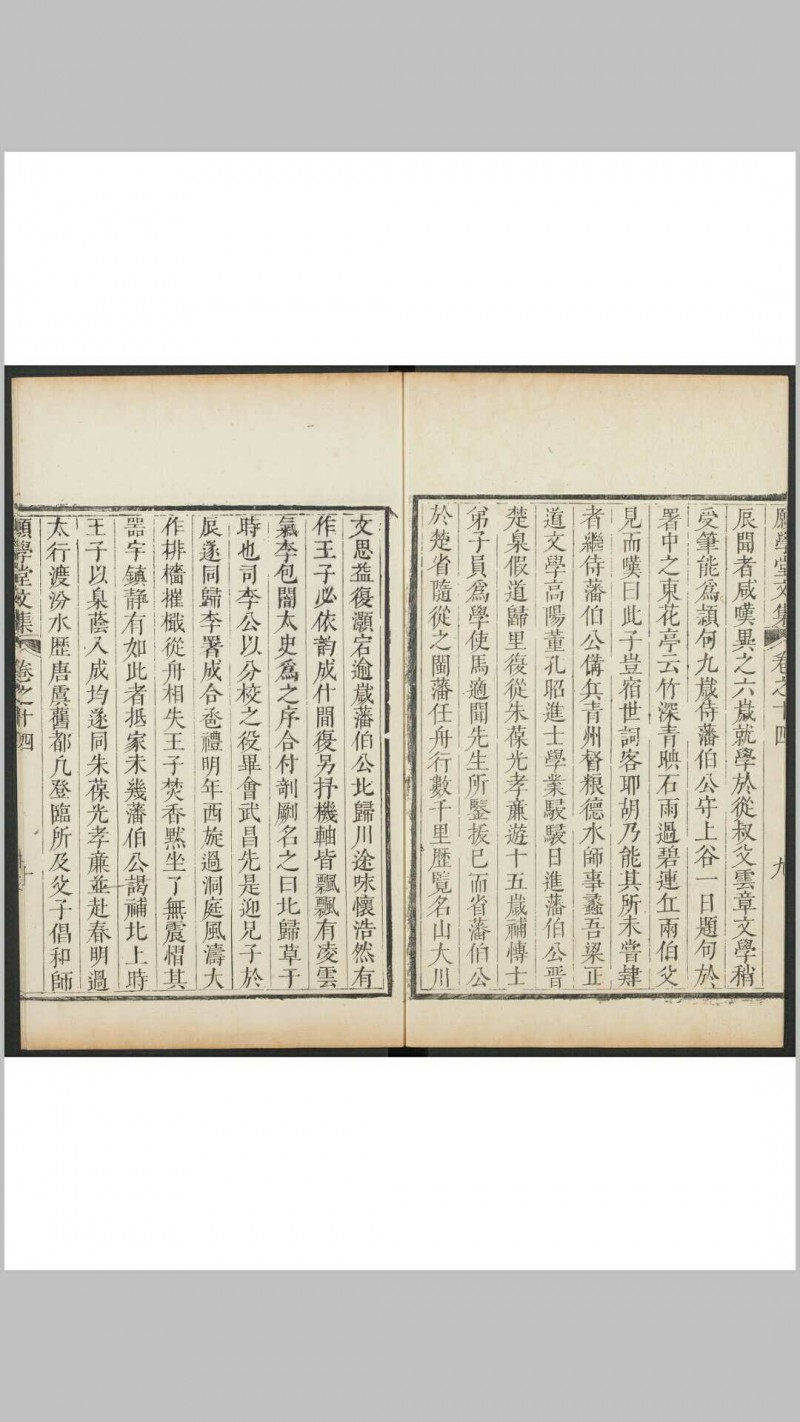 願學堂文集 卷之十四 九
辰聞者咸嘆異之六歲就學於從叔父雲章文學稍
受筆能爲韻句九歲侍藩伯公守上谷一日題句於
署中之東花亭云竹深青映石雨過碧連丘兩伯父
見而嘆曰此子豈宿世詞客耶胡乃能其所未嘗肄
者繼侍藩伯公備兵青州督粮德水師事蠡吾梁正
道文學高陽董孔昭進士學業駸駸日進藩伯公晋
楚臬假道歸里復從朱葆光孝亷遊十五歲補博士
弟子員爲學使馬適聞先生所鑒拔已而省藩伯公
於楚省隨從之閩藩任舟行數千里歷覧名山大川
文思益復灝宕逾歲藩伯公北歸川途味懷浩然有
作王子必依韵成什間復另抒機軸皆飄飄有凌雲
氣李包闇太史爲之序合付剞劂名之曰北歸草于
時也司李公以分校之役畢會武昌先是迎兄子於
辰遂同歸李署成合卺禮明年西旋過洞庭風濤大
作排檣摧檝從舟相失王子焚香黙坐了無震慴其
器宇鎮静有如此者抵家未幾藩伯公謁補北上時
王子以臬蔭入成均遂同朱葆光孝亷並赴春明過
太行渡汾水歷唐虞舊都凡登臨所及父子倡和師
願學堂文集 卷之十四 十